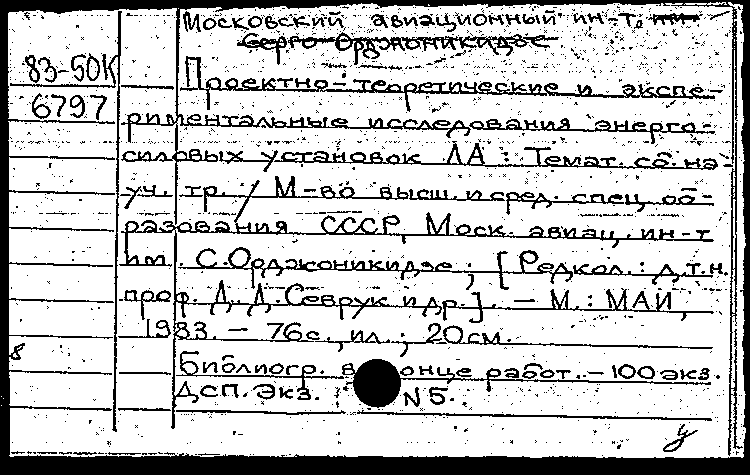 Московский авиационный ин-т.
Серго Орджоникидзе
83-50К
6797
Проектно-теоретические и экспе-
риментальные исследования энерго-
силовых установок ЛА : Темат. сб. на-
уч. тр. / М-во высш. и сред. спец. об-
разования СССР, Моск. авиац. ин-т
им. С. Орджоникидзе ; [Редкол.: д.т.н.
проф. Д. Д. Севрук и др.]. — М. : МАИ,
1983. — 76 с., ил. ; 20 см.
8
Библиогр. в конце работ. — 100 экз.
ДСП. Экз. N 5.
у